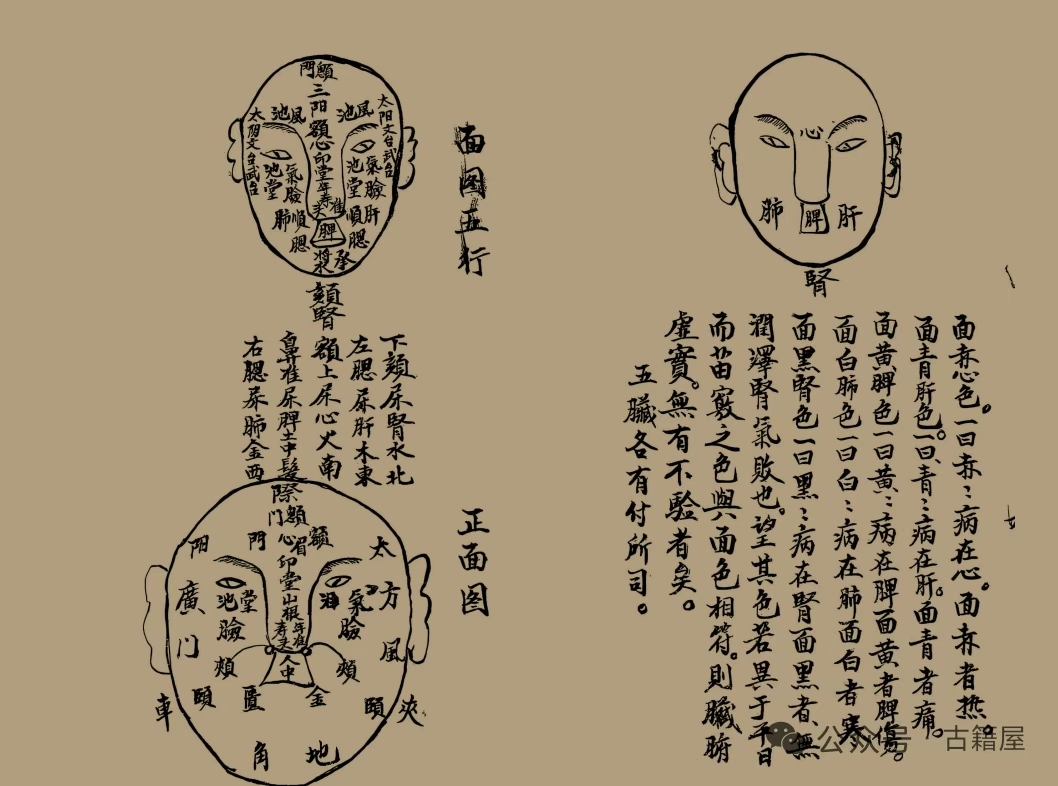 心
肺
脾
肝
腎
面赤心色。一曰赤〻病在心。面赤者热。
面青肝色。一曰青〻病在肝。面青者痛。
面黄脾色一曰黄〻病在脾面黄者脾傷。
面白肺色一曰白〻病在肺面白者寒
面黑腎色一曰黑〻病在腎面黑者無
潤澤腎氣敗也。望其色若異于平日
而苗竅之色與面色相符。則臟腑
虛實。無有不驗者矣。
五臟各有付所司。
面图五行
顖門
三阳
額心印堂年寿
准头
風池
太阳文台武台
氣池
臉堂
肝
順腮
脾
承漿
風池
太阴文台武台
氣池
臉堂
肺
順腮
頦腎
下頦属腎水北
左腮属肝木東
額上属心火南
鼻准属脾土中
右腮属肺金西
正面图
髮際
顖門
額
心
眉
印堂山根
年寿
准头
人中
太
門
阳
方
廣
門
氣
淚
臉
池
堂
臉
風
門
頰
頰
金
匱
頤
頤
夾
車
地
角
公众号
古籍屋